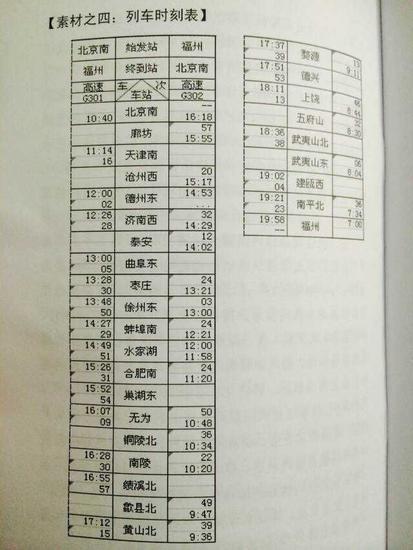 【素材之四：列车时刻表】
北京南 始发站 福州
福州 终到站 北京南
高速 车 次 高速
G301 车站 G302
--
10:40 北京南 16:18
57
廊坊 15:55
11:14
16 天津南
20
沧州西 15:17
12:00 14:53
02 德州东 ...
12:26 32
28 济南西 14:29
12
泰安 14:02
13:00
05 曲阜东
13:28 24
30 枣庄 13:21
13:48 03
50 徐州东 13:00
14:27 24
29 蚌埠南 12:21
14:49 12:00
51 水家湖 11:58
15:26 24
31 合肥南 11:20
15:52
54 巢湖东
16:07 50
09 无为 10:48
36
铜陵北 10:34
16:28 22
30 南陵 10:20
16:55
57 绩溪北
49
歙县北 9:47
17:12 39
15 黄山北 9:36
17:37 13
39 婺源 9:11
17:51
53 德兴
18:11 46
13 上饶 8:44
32
五府山 8:30
18:36
38 武夷山北
06
武夷山东 8:04
19:02
04 建瓯西
19:21 36
23 南平北 7:34
19:58 7:00
-- 福州